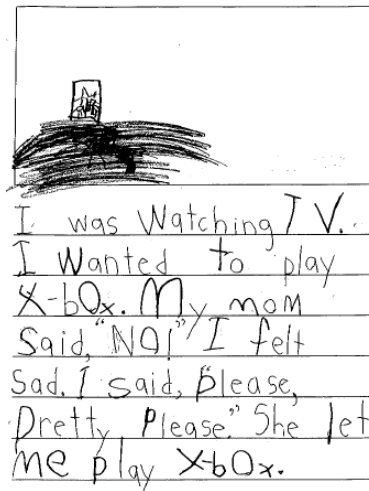 I was Watching TV.
I Wanted to play
X-bOx. My mom
Said, "NO!" I felt
Sad. I said, "Please,
Pretty Please." She let
me play X-bOx.